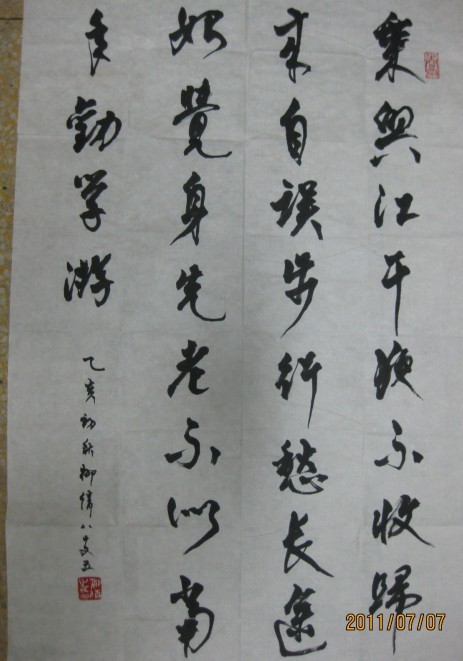 乘興江干晚不收歸
来自誤步行愁長途
始覺身先老不似當
年勸学游
乙亥初秋柳倩八十又五
2011/07/07